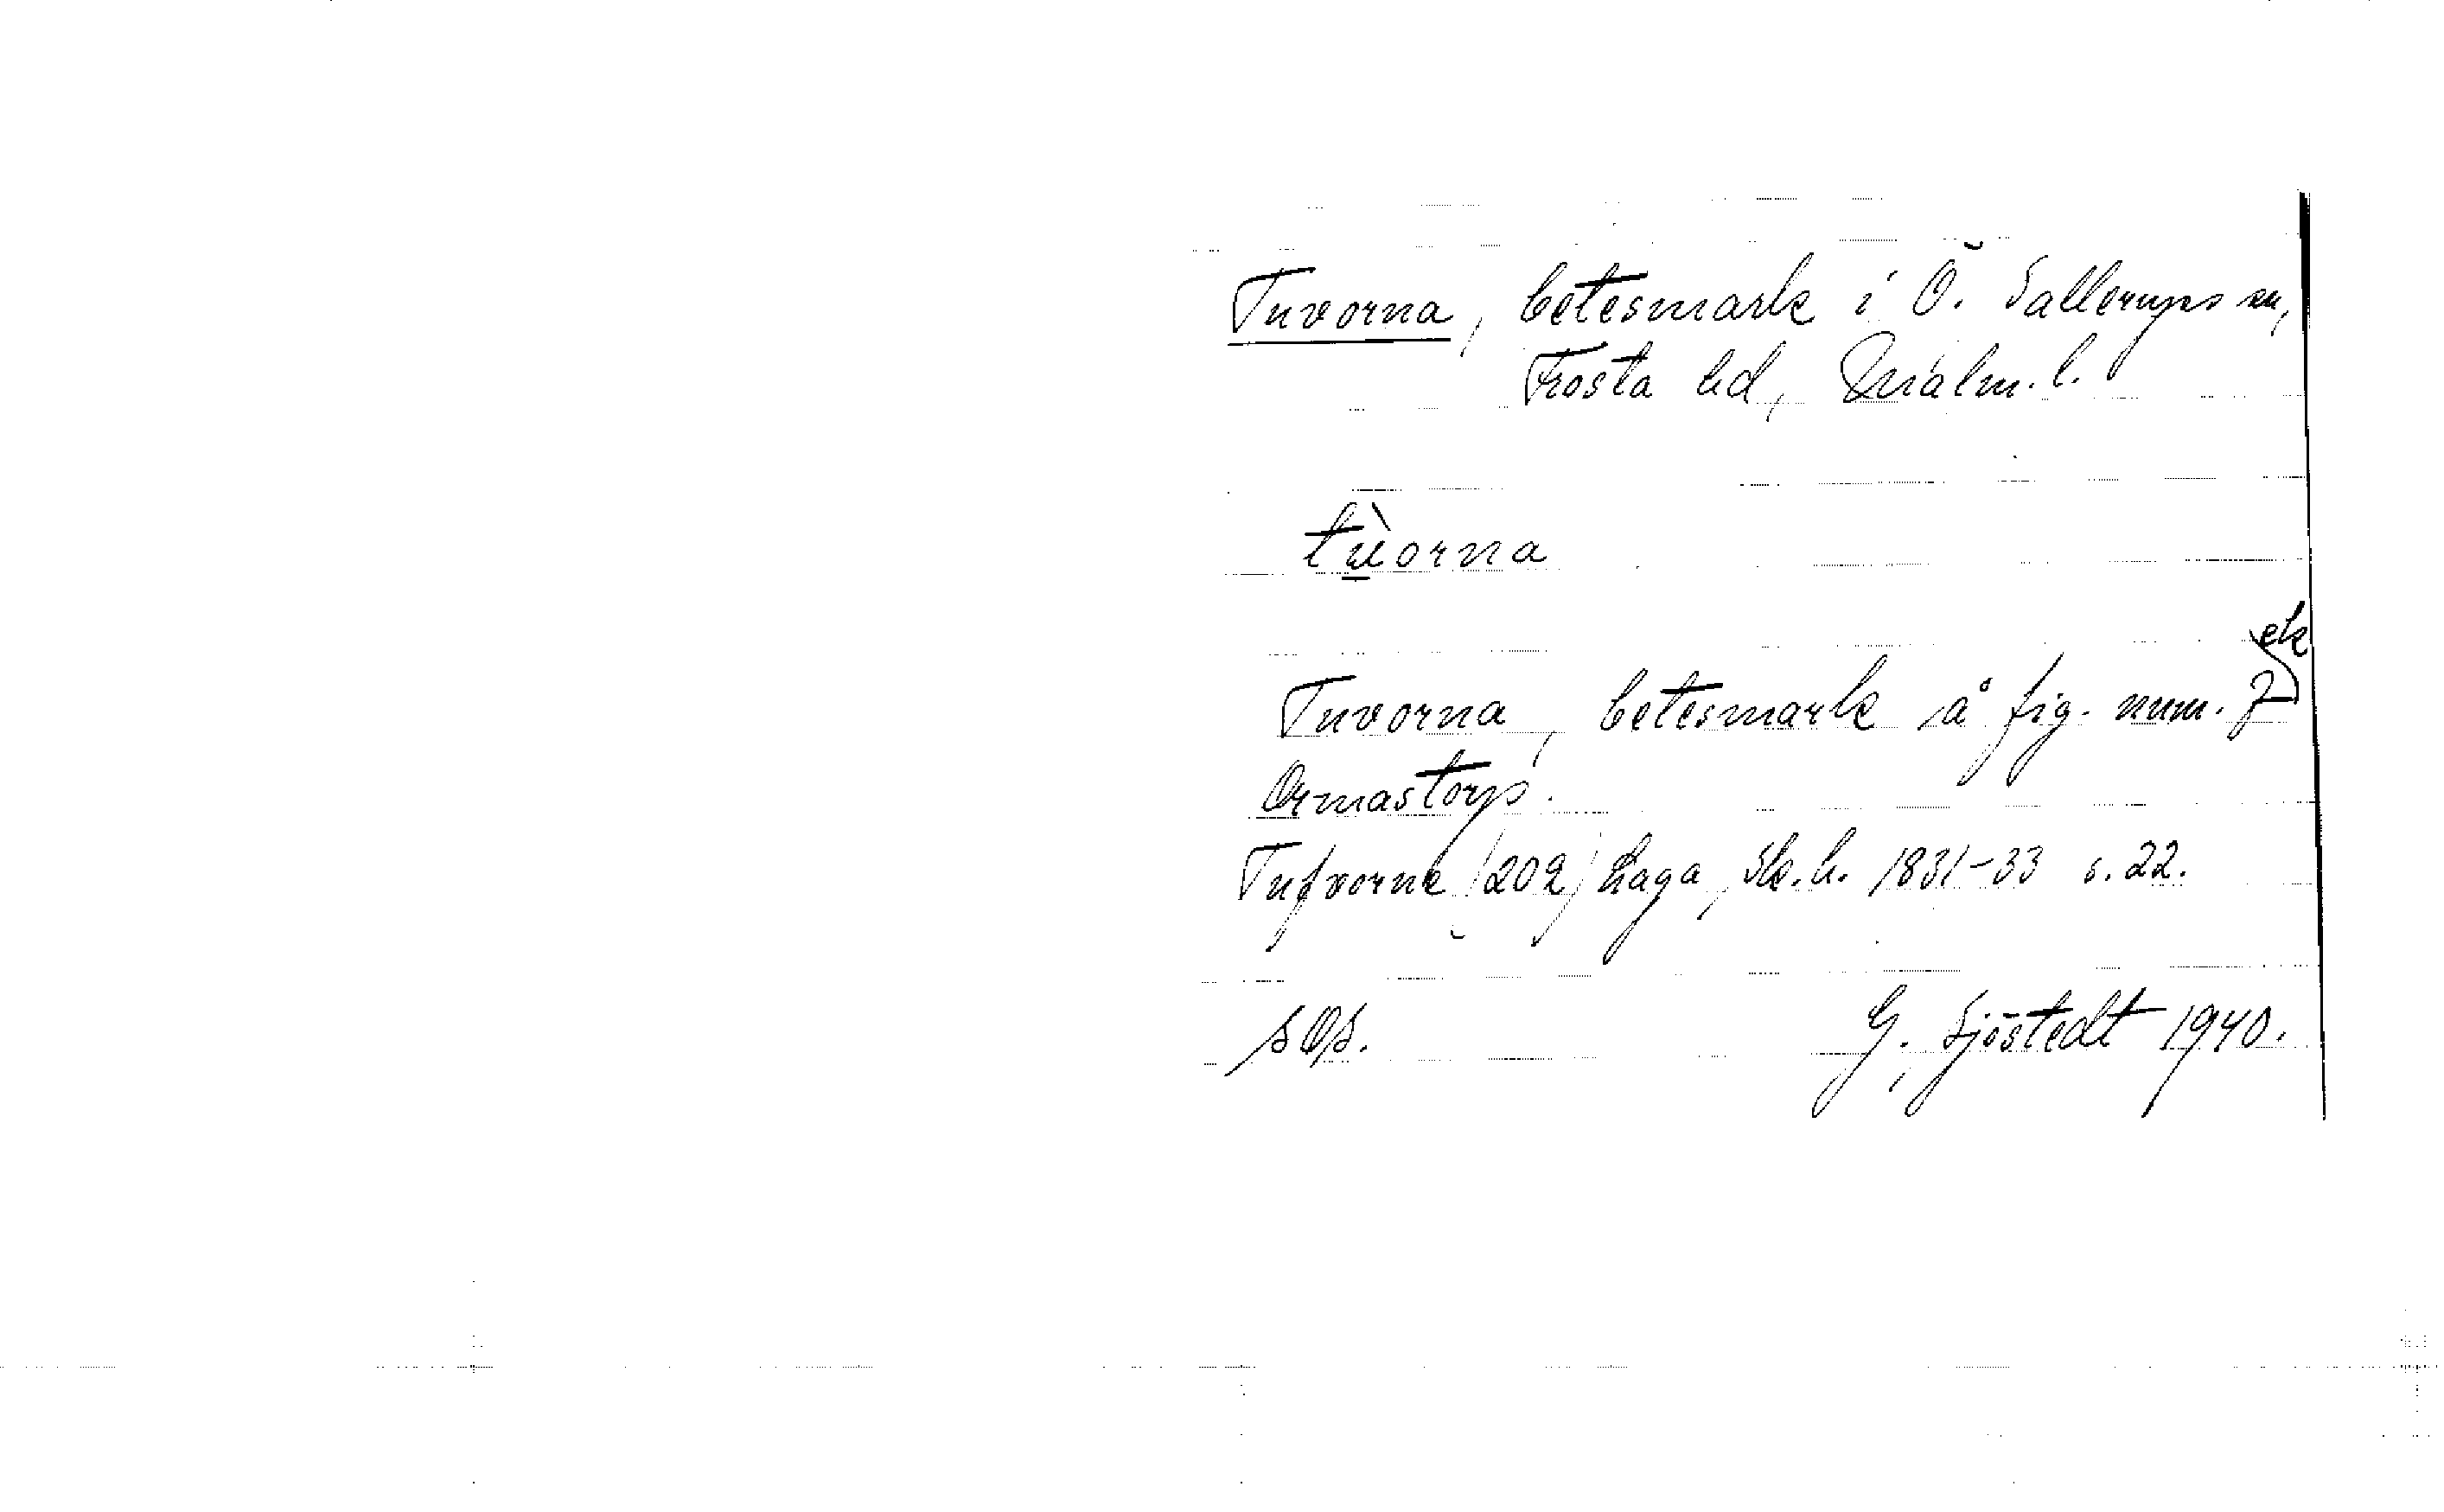 Tuvorna, betesmark i Ö. Sallerups sn,
Frosta hd, Malm. l.
tùorna
ek
Tuvorna, betesmark å fig. num. 7
Ormastorp.
Tufvorne (202) haga, Sk.h. 1831-33 s. 22.
G. Sjöstedt 1940.